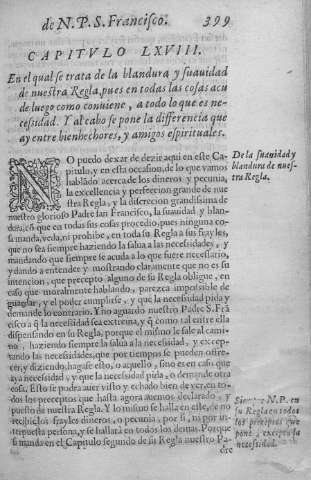 de N.P.S. Francisco. 399
CAPITVLO LXVIII.
En el qual se trata de la blandura y suauidad
de nuestra Regla, pues en todas las cosas acu
de luego como conuiene, a todo lo que es ne-
cessidad. Y al cabo se pone la differencia que
ay entre bienhechores, y amigos espirituales.
NO puedo dexar de dezir aqui en este Ca-
pitulo, y en esta occasion, de lo que vamos
hablando acerca de los dineros y pecunia,
la excellencia y perfeccion grande de nue
stra Regla, y la discrecion grandissima de
nuestro glorioso Padre san Francisco, la suauidad y blan-
dura, cõ que en todas sus cosas procedio, pues ninguna co-
sa manda, veda, ni prohibe, en toda su Regla a sus frayles,
que no sea siempre haziendo la salua a las necessidades, y
mandando que siempre se acuda a lo que fuere necessario,
y dando a entender y mostrando claramente que no es su
intencion, que precepto alguno de su Regla obligue, en
caso que moralmente hablando, parezca impossible de
guardar, y el poder cumplirse, y que la necessidad pida y
demande lo contrario. Y no aguardo nuestro Padre S. Frã
cisco a q̃ la necessidad sea extrema, y q̃ como tal entre ella
dispensando en su Regla, porque el mismo le sale al cami-
no, haziendo siempre la salua a la necessidad, y excep-
tando las necessidades, que por tiempos se pueden offre-
cer, y diziendo, hagase esto, o aquello, sino es en caso que
aya necessidad, y que la necessidad pida, o demande otra
cosa. Esto se podra auer visto y echado bien de ver, en to-
dos los preceptos que hasta agora auemos declarado, y
puesto de nuestra Regla. Y lo mismo se halla en este, de no
recibir los frayles dineros, o pecunia, por si, ni por in-
terpuesta persona, y se hallará en todos los demas. Porque
si manda en el Capitulo segundo de su Regla nuestro Pa-
dre
De la suauidad y
blandura de nues-
tra Regla.
Siempre N.P. en
su Regla en todos
los preceptos que
pone, excepta la
necessidad.